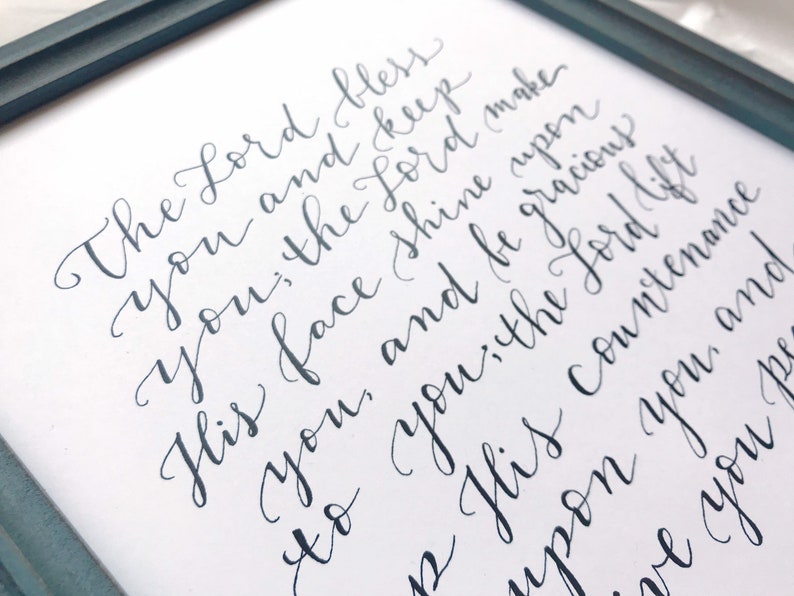 The Lord bless
you and keep
you; the Lord make
His face shine upon
you, and be gracious
to you; the Lord lift
p His countenance
upon you, and
ive you pe